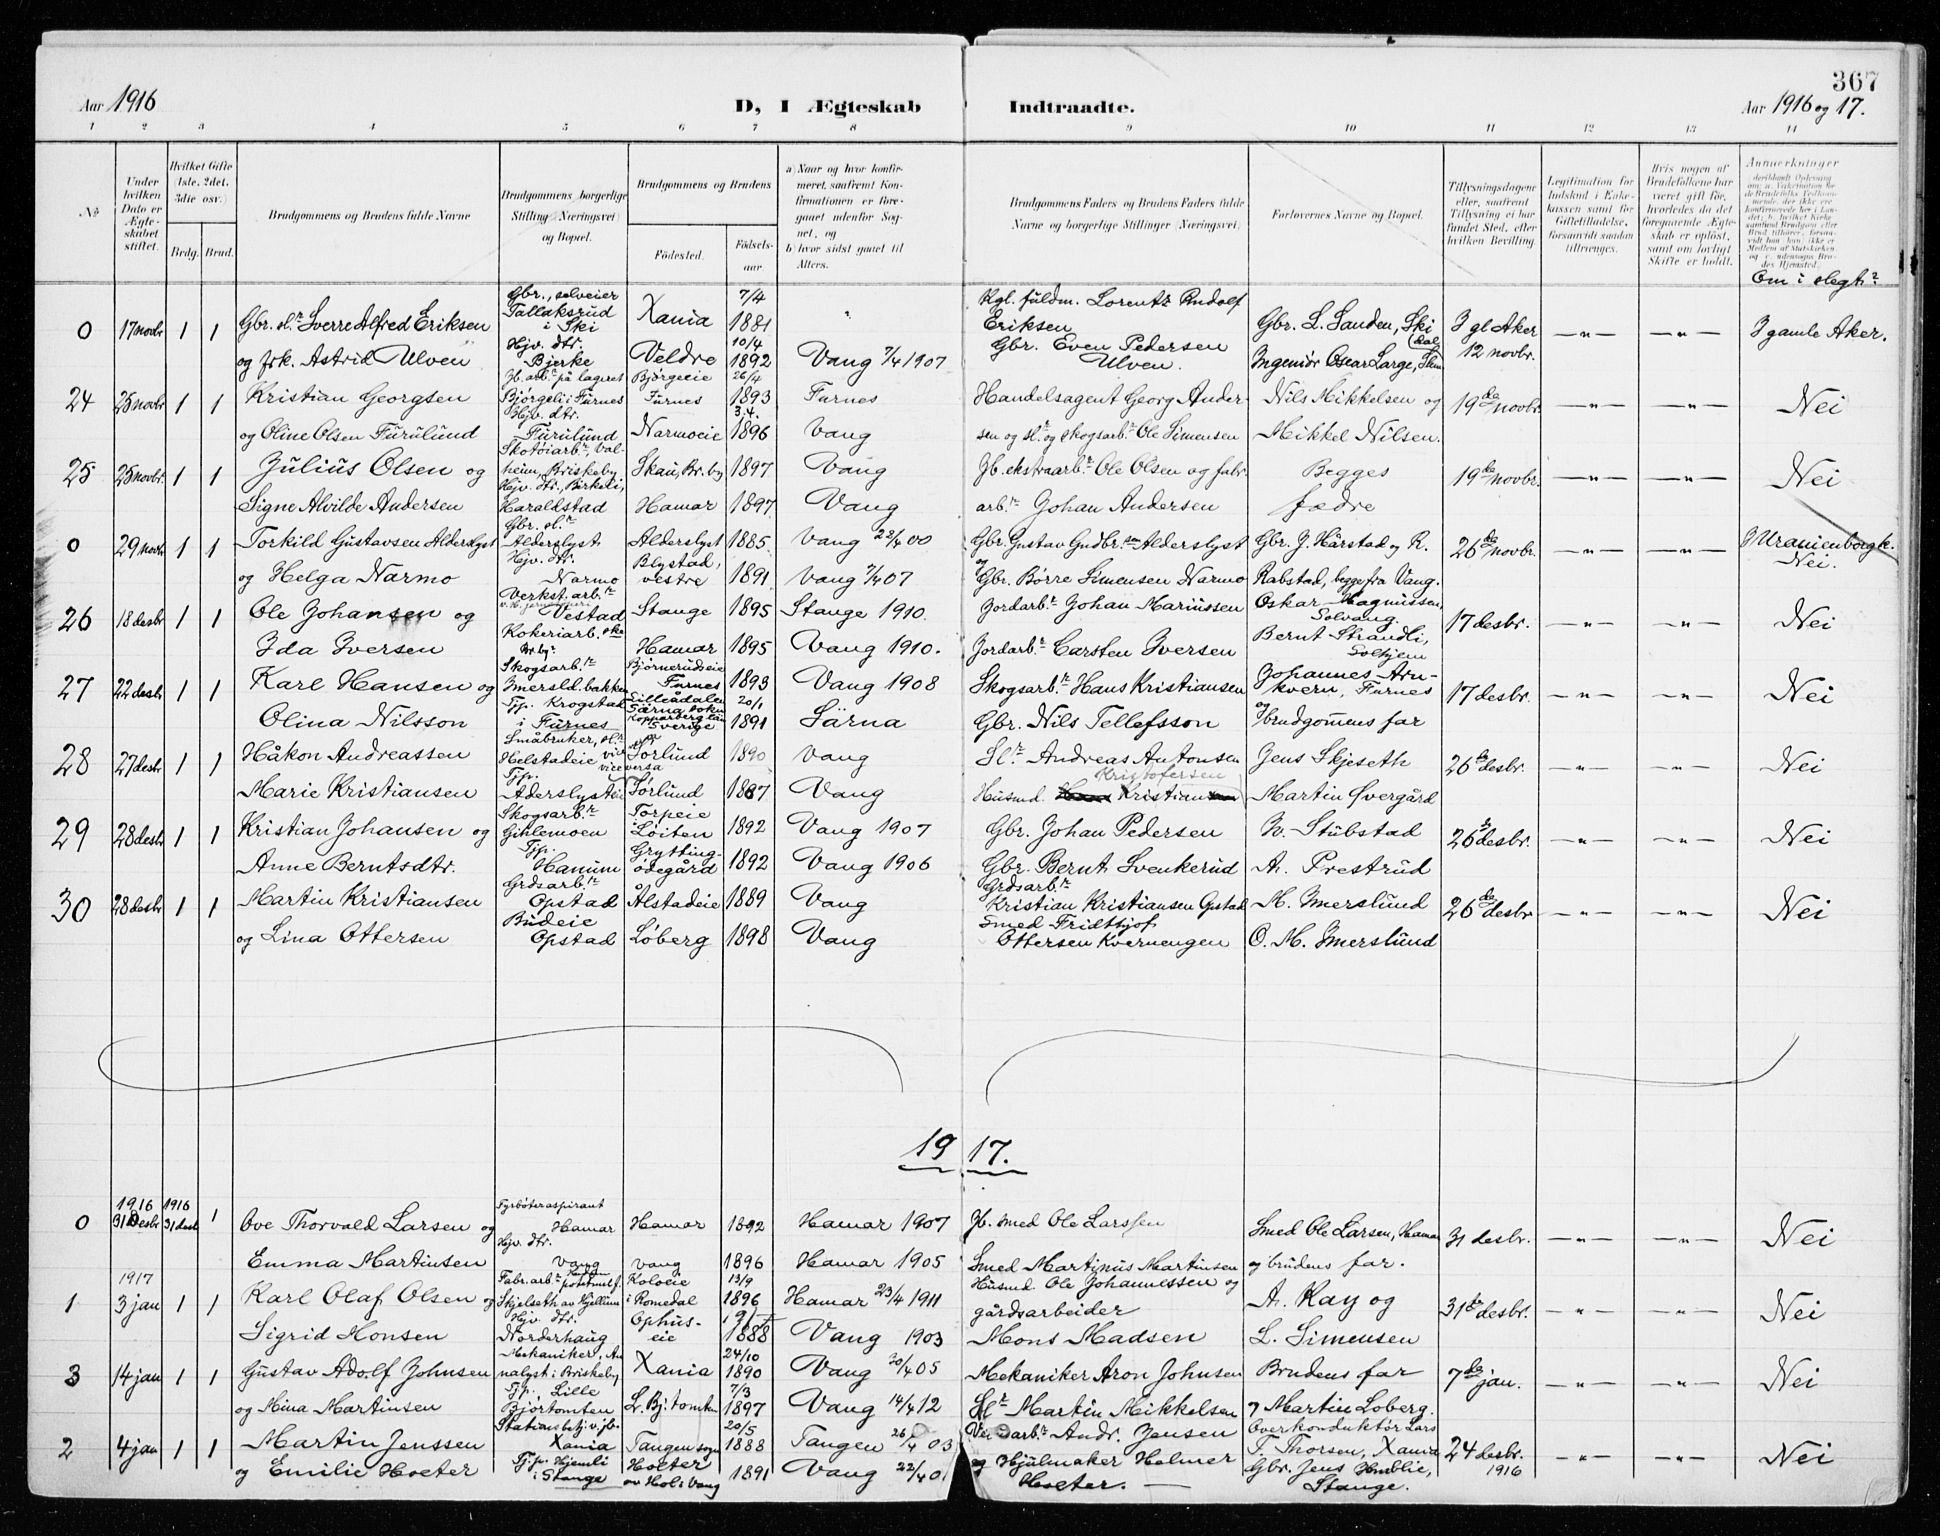 367
Aar 1916
D, I Ægteskab Indtraadte.
Aar 1916 og 17.
1 2 3 4 5 6 7 8 9 10 11 12 13 14
№
Under hvilken Dato er Ægteskabet stiftet.
Hvilket Gifte (1ste, 2det, 3die osv.)
Brdg. Brud.
Brudgommens og Brudens fulde Navne
Brudgommens borgerlige Stilling (Næringsvei) og Bopæl.
Brudgommens og Brudens
Fødested. Fødselsaar
a) Naar og hvor konfirmeret, saafremt Konfirmationen er foregaaet udenfor Sognet, og
b) hvor sidst gaaet til Alters.
Brudgommens Faders og Brudens Faders fulde Navne og borgerlige Stillinger (Næringsvei)
Forlovernes Navne og Bopæl.
Tillysningsdagene eller, saafremt Tillysning ei har fundet Sted, efter hvilken Bevilling.
Legitimation for Indskud i Enkekassen samt for Giftetilladelse, forsaavidt saadan tiltrænges.
Hvis nogen af Brudefolkene har været gift før, hvorledes da det foregaaende Ægteskab er opløst, samt om lovligt Skifte er holdt.
Anmerkninger
Om i slegt?
0 17 novbr 1 1 Gbr. sl.r Sverre Alfred Eriksen Gbr., selveier Tallaksrud i Ski Xania 7/4 1881 Kgl. fuldm. Lorentz Rudolf Eriksen Gbr. L. Sanden, Ski 3 gl Aker —„— —„— 3 gamle Aker.
og frk. Astrid Ulven Hjv. dtr. Bjerke Veldre 10/4 1892 Vang 7/4 1907 Gbr. Even Pedersen Ulven. Ingeniør Oscar Large, 12 novbr.
24 25 novbr 1 1 Kristian Georgsen Jb. arb.r på lageret Bjørgeli i Furnes Bjørgeeie Furnes 26/4 1893 Furnes Handelsagent Georg Ander- Nils Mikkelsen og 19de novbr. —„— —„— Nei
og Oline Olsen Furulund Hjv. dtr. Furulund Narmoeie 3.4. 1896 Vang sen og sl.r og skogsarb.r Ole Simensen Mikkel Nilsen.
25 25 novbr. 1 1 Julius Olsen og Skotøiarb.r, Valheim, Briskeby Skau, Br. by 1897 Vang Jb. ekstraarb.r Ole Olsen og fabr. Begges 19de novbr. —„— —„— Nei
Signe Alvilde Andersen Hjv. dtr., Birkeli, Haraldstad Hamar 1897 Vang arb.r Johan Andersen fædre
0 29 novbr 1 1 Torkild Gustavsen Alderslyst Gbr. sl.r Alderslyst. Alderslyst 1885 Vang 22/4 00 Gbr. Gustav Gudbr.sen Alderslyst Gbr. J. Hårstad og R. 26de novbr. —„— —„— I Uranienborgk. Nei.
og Helga Narmo Hjv. dtr. Narmo Blystad, vestre 1891 Vang 7/4 07 og Gbr. Børre Simensen Narmo Rabstad, begge fra Vang.
26 18 desbr 1 1 Ole Johansen og Verkst. arb.r Vestad Stange 1895 Stange 1910. Jordarb.r Johan Mariussen Oskar Magnussen, Solvang. 17 desbr. —„— —„— Nei
Ida Iversen Kokeriarb.ske Br. by. Hamar 1895 Vang 1910. Jordarb.r Carsten Iversen Bernt Strandli, Solhjem
27 22 desbr 1 1 Karl Hansen og Skogsarb.r Imersld.bakken Bjørnerudseie Furnes 1893 Vang 1908 Skogsarb.r Hans Kristiansen Johannes Arn- kvern, Furnes 17 desbr. —„— —„— Nei
Olina Nilsson Tjp. Krogstad i Furnes Lilleådalen Särna soken Kopparberg län Sverige 20/1 1891 Särna Gbr. Nils Tellefsson og brudgommens far
28 27 desbr 1 1 Håkon Andreassen Småbruker, sl.r Helstadeie Sørlund 1890 Vang Sl.r Andreas Antonsen Jens Skjeseth 26de desbr. —„— —„— Nei
Marie Kristiansen Tjp. Alderslysteie Sørlund 1887 Vang Husmd. Kristian Kristofersen Martin Øvergård
29 28 desbr 1 1 Kristian Johansen og Skogsarb.r Gihlemoen Torpeie i Løiten 1892 Vang 1907 Gbr. Johan Pedersen W. Stubstad 26de desbr. —„— —„— Nei
Anne Berntsdtr. Tjp. Hanum Grytting- ødegård 1892 Vang 1906 Gbr. Bernt Svenkerud A. Prestrud
30 28 desbr 1 1 Martin Kristiansen Grdsarb.r Opstad Ålstadeie 1889 Vang Grdsarb.r Kristian Kristiansen Opstad M. Imerslund 26de desbr —„— —„— Nei
og Lina Ottersen Budeie Opstad Løberg 1898 Vang Smed Fridthjof Ottersen Kvernengen O. M. Imerslund
1917.
0 1916 31 desbr 1916 31 desbr 1 Ove Thorvald Larsen og Fyrbøteraspirant Hamar Hamar 1892 Hamar 1907 Jb. smed Ole Larsen Smed Ole Larsen, Hamar 31 desbr. —„— —„— Nei
Emma Martinsen Hjv. dtr. Vang Vang 1896 Hamar 1905 Smed Martinus Martinsen og brudens far.
1 1917 3 jan 1 1 Karl Olaf Olsen og Fabr. arb.r Skjelseth av Hjellum Koloeie i Romedal 13/9 1896 Hamar 23/4 1911 Husmd Ole Johannessen og gårdsarbeider A. Kay og 31te desbr. —„— —„— Nei
Sigrid Monsen Hjv. dtr. Norderhaug Ophus- eie 1888 Vang 1903 Mons Madsen L. Simensen
3 14 jan 1 1 Gustav Adolf Johnsen Mekaniker, Analyst i Briskeby Xania 24/10 1890 Vang 30/4 05 Mekaniker Aron Johnsen Brudens far 7de jan. —„— —„— Nei
og Mina Martinsen Tjp. Lille Bjørtomten L. Bj. tomten 7/3 1897 Vang 14/4 12 Sl.r Martin Mikkelsen og Martin Løberg.
2 4 jan 1 1 Martin Jenssen Stationsbetj. v. jb. Xania Tangen sogn 20/5 1888 Tangen 26/4 03 Veiarb.r Andr. Jensen Overkonduktør Lars T. Thorsen, Xania 24 desbr. 1916 —„— —„— Nei
og Emilie Hoeter Tjp. Hjemli i Stange Hoeter av Hol i Vang 1891 Vang 22/4 0 og Hjulmaker Helmer Hoeter. — Gbr. Jens Stange.